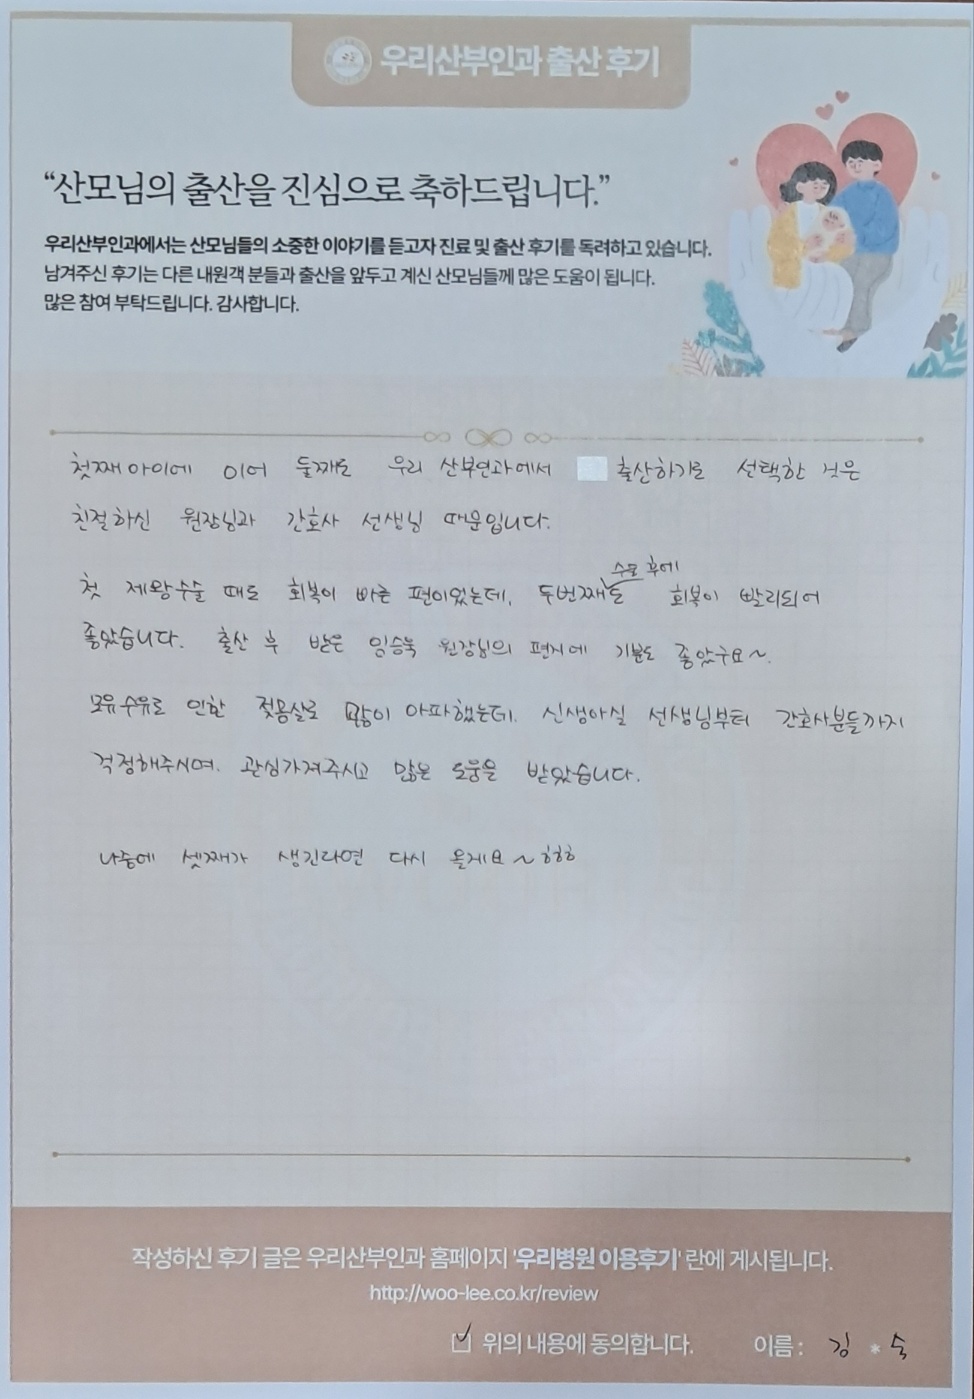 우리산부인과 출산 후기
“산모님의 출산을 진심으로 축하드립니다.”
우리산부인과에서는 산모님들의 소중한 이야기를 듣고자 진료 및 출산 후기를 독려하고 있습니다.
남겨주신 후기는 다른 내원객 분들과 출산을 앞두고 계신 산모님들께 많은 도움이 됩니다.
많은 참여 부탁드립니다. 감사합니다.
첫째 아이에 이어 둘째도 우리 산부인과에서 출산하기로 선택한 것은
친절하신 원장님과 간호사 선생님 때문입니다.
수술 후에
첫 제왕수술 때도 회복이 빠른 편이었는데, 두번째도 회복이 빨리되어
좋았습니다. 출산 후 받은 임승욱 원장님의 편지에 기분도 좋았구요~.
모유수유로 인한 젖몸살로 많이 아파했는데. 신생아실 선생님부터 간호사분들까지
걱정해주시며. 관심가져주시고 많은 도움을 받았습니다.
나중에 셋째가 생긴다면 다시 올게요~ㅎㅎㅎ
작성하신 후기 글은 우리산부인과 홈페이지 '우리병원 이용후기' 란에 게시됩니다.
http://woo-lee.co.kr/review
위의 내용에 동의합니다. 이름 : 김 * 숙